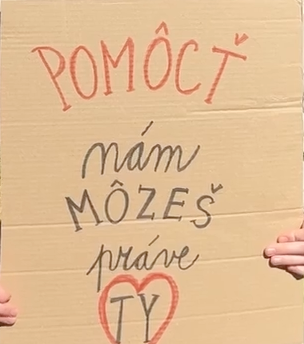 POMÔCŤ
nám
MÔZEŠ
práve
TY